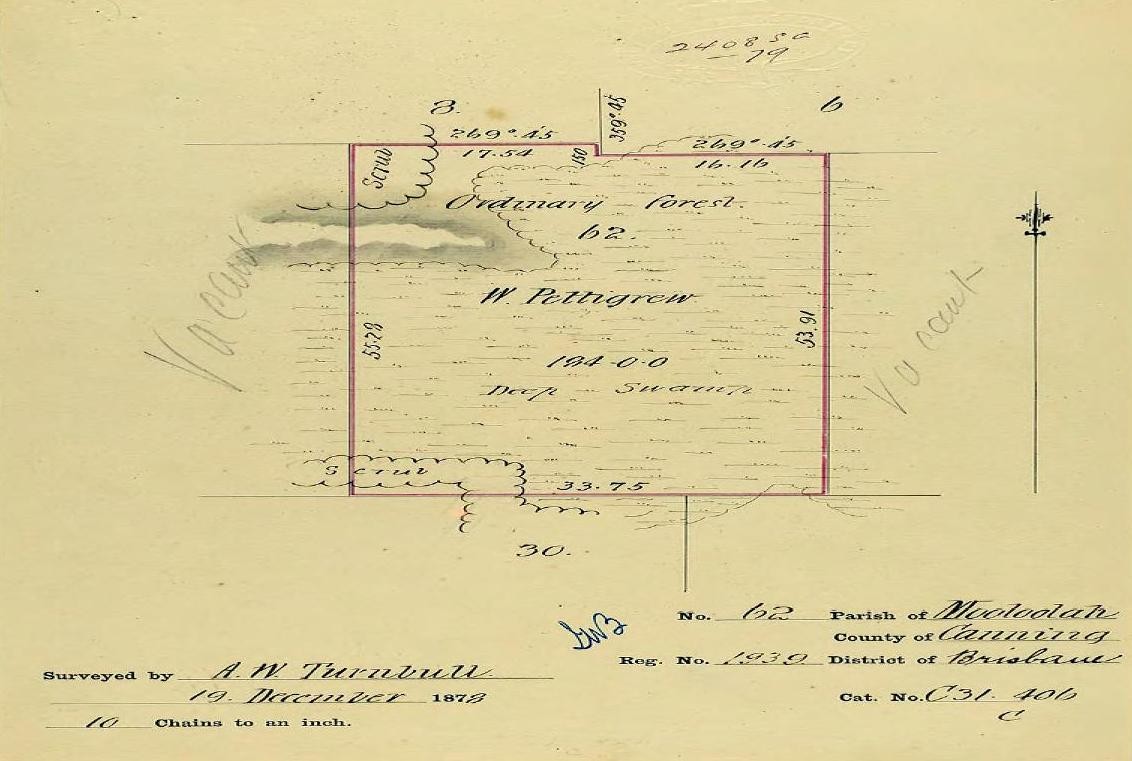 24085a
79
8. 6
269°.45 359°.45 269°.45
17.54 150 16.16
Scrub
Ordinary Forest.
62.
Vacant
W. Pettigrew
Vacant
55.28 53.91
184-0-0
Deep Swamp
Scrub
33.75
30.
No. 62 Parish of Mooloolah
County of Canning
Reg. No. 1939 District of Brisbane
Surveyed by A. W. Turnbull.
19. December 1878
Cat. No. C31. 406
C
10 Chains to an inch.